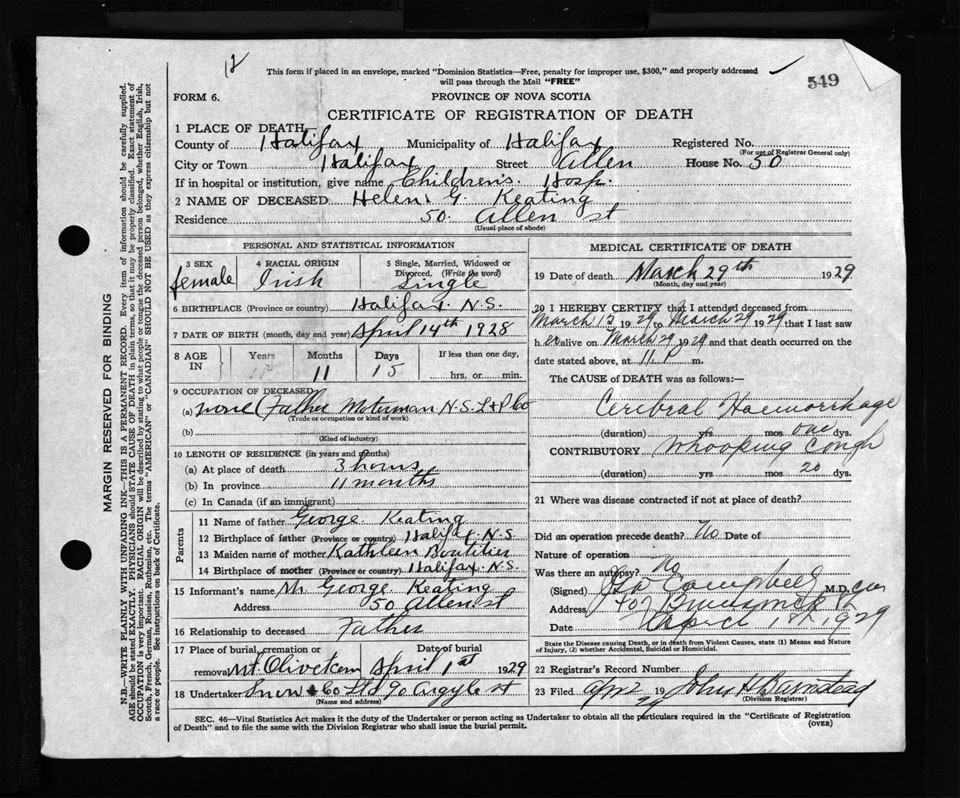 12
This form if placed in an envelope, marked "Dominion Statistics—Free, penalty for improper use, $300," and properly addressed
will pass through the Mail "FREE"
549
FORM 6.
PROVINCE OF NOVA SCOTIA
CERTIFICATE OF REGISTRATION OF DEATH
1 PLACE OF DEATH
County of Halifax Municipality of Halifax Registered No.
(For use of Registrar General only)
City or Town Halifax Street Allen House No. 50
If in hospital or institution, give name Children's Hosp.
2 NAME OF DECEASED Helen G. Keating
Residence 50 Allen st
(Usual place of abode)
MARGIN RESERVED FOR BINDING
N.B.—WRITE PLAINLY WITH UNFADING INK—THIS IS A PERMANENT RECORD. Every item of information should be carefully supplied.
AGE should be stated EXACTLY. PHYSICIANS should STATE CAUSE OF DEATH in plain terms, so that it may be properly classified. Exact statement of
OCCUPATION is very important. RACIAL ORIGIN will be described by stating to what people or tongue the deceased person belonged, whether English, Irish,
Scotch, French, German, Russian, Ruthenian, etc. The terms "AMERICAN" or "CANADIAN" SHOULD NOT BE USED as they express citizenship but not
a race or people. See instructions on back of Certificate.
PERSONAL AND STATISTICAL INFORMATION
3 SEX
female
4 RACIAL ORIGIN
Irish
5 Single, Married, Widowed or
Divorced, (Write the word)
Single
6 BIRTHPLACE (Province or country) Halifax N.S.
7 DATE OF BIRTH (month, day and year) April 14th 1928
8 AGE IN
Years
Months
11
Days
15
If less than one day,
hrs. or min.
9 OCCUPATION OF DECEASED
(a) none (Father Moterman N.S. L & P Co
(Trade or occupation or kind of work)
(b)
(Kind of industry)
10 LENGTH OF RESIDENCE (in years and months)
(a) At place of death 3 hours
(b) In province 11 months
(c) In Canada (if an immigrant)
Parents
11 Name of father George Keating
12 Birthplace of father (Province or country) Halifax N.S.
13 Maiden name of mother Kathleen Boutilier
14 Birthplace of mother (Province or country) Halifax N.S.
15 Informant's name Mr George Keating
Address 50 Allen st
16 Relationship to deceased Father
17 Place of burial, cremation or
removal Mt Olivet Cem
Date of burial
April 1st 1929
18 Undertaker Snow & Co Ltd 90 Argyle st
(Name and address)
MEDICAL CERTIFICATE OF DEATH
19 Date of death March 29th 1929
(Month, day and year)
20 I HEREBY CERTIFY that I attended deceased from
March 12 1929 to March 29 1929 that I last saw
her alive on March 29 1929 and that death occurred on the
date stated above, at 11 P m.
The CAUSE of DEATH was as follows:—
Cerebral Haemorrhage
(duration) yrs mos one dys.
CONTRIBUTORY Whooping Cough
(duration) yrs mos 20 dys.
21 Where was disease contracted if not at place of death?
Did an operation precede death? No Date of
Nature of operation
Was there an autopsy? No
(Signed) Campbell M.D.
Address 407 Brunswick
Date April 1st 1929
State the Disease causing Death, or in death from Violent Causes, state (1) Means and Nature
of Injury, (2) whether Accidental, Suicidal or Homicidal.
22 Registrar's Record Number
23 Filed Apr 2 1929 John H Barnstead
(Division Registrar)
SEC. 46—Vital Statistics Act makes it the duty of the Undertaker or person acting as Undertaker to obtain all the particulars required in the "Certificate of Registration
of Death" and to file the same with the Division Registrar who shall issue the burial permit.
(OVER)